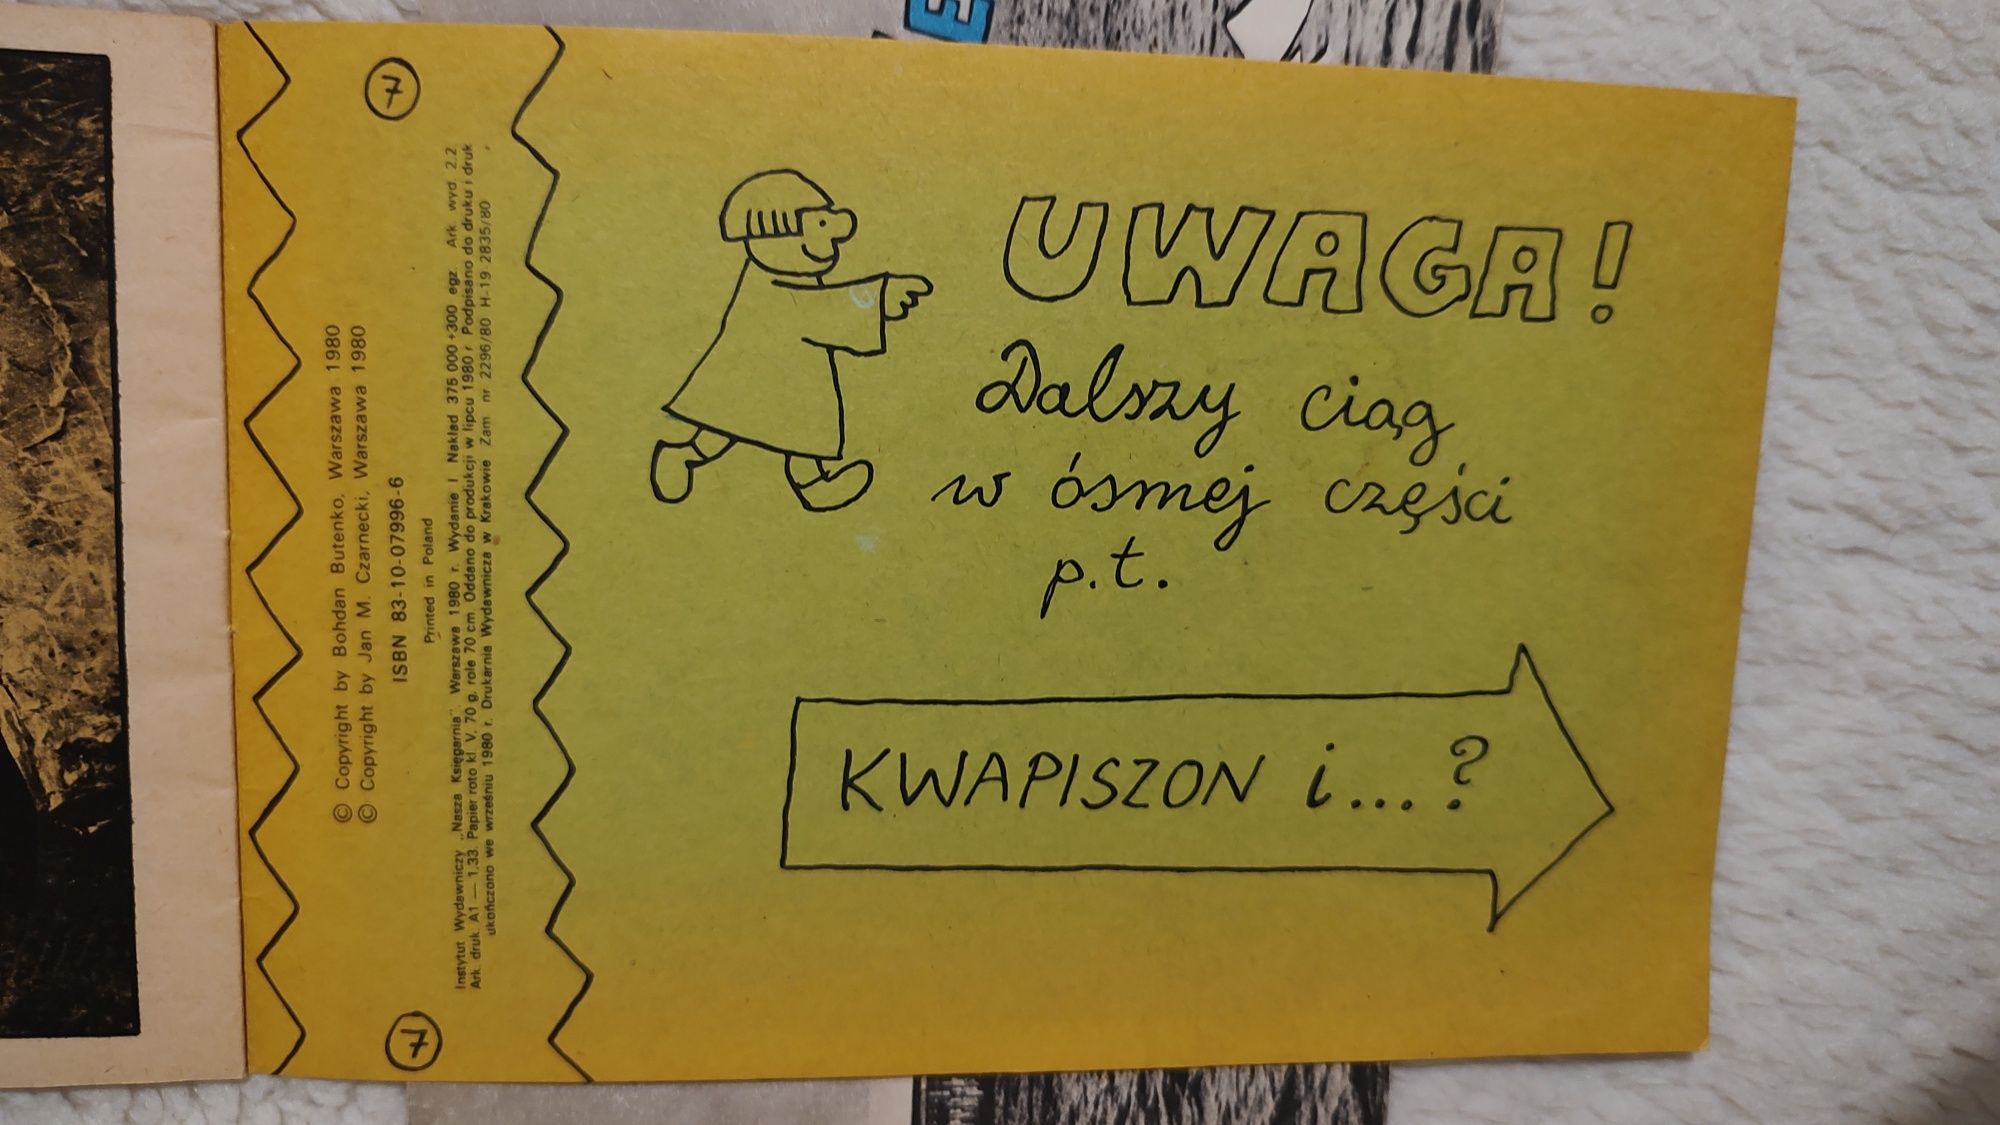 7
© Copyright by Bohdan Butenko, Warszawa 1980
© Copyright by Jan M. Czarnecki, Warszawa 1980
ISBN 83-10-07996-6
Printed in Poland
Instytut Wydawniczy „Nasza Księgarnia”, Warszawa 1980 r. Wydanie I. Nakład 375 000+300 egz. Ark. wyd. 2,2
Ark. druk. A1 — 1,33. Papier roto kl. V, 70 g, role 70 cm. Oddano do produkcji w lipcu 1980 r. Podpisano do druku i druk
ukończono we wrześniu 1980 r. Drukarnia Wydawnicza w Krakowie Zam. nr 2296/80 H-19 2835/80
7
UWAGA!
Dalszy ciąg
w ósmej części
p.t.
KWAPISZON i...?